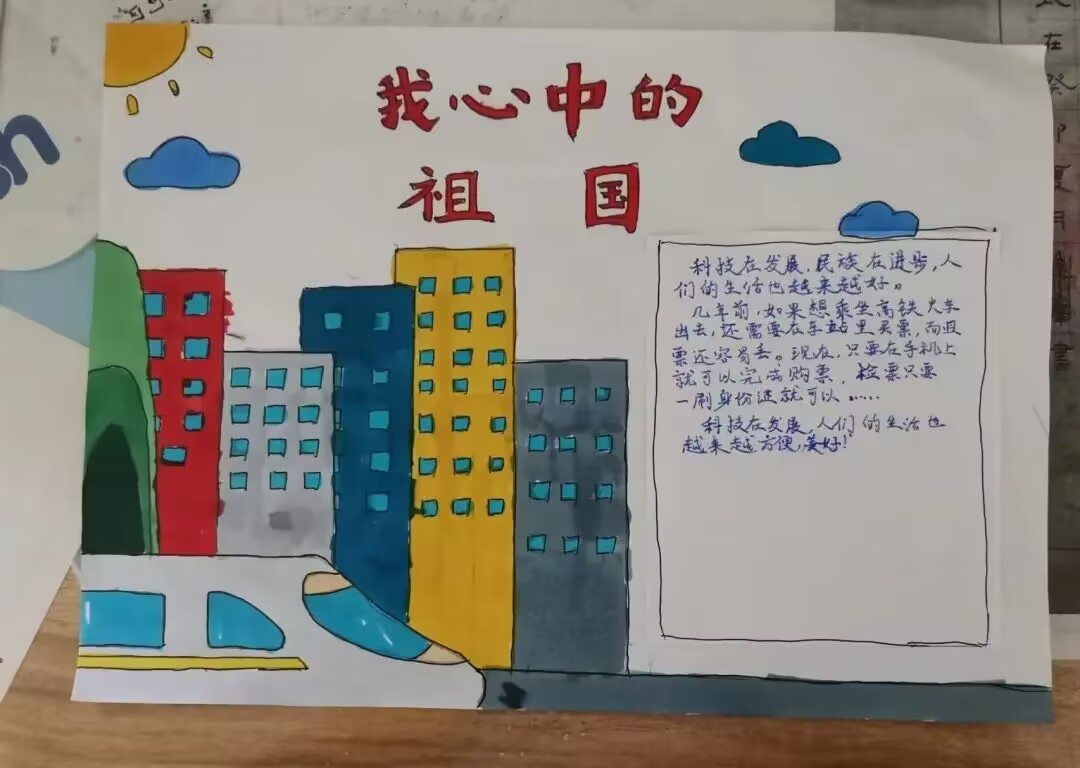 我心中的
祖国
科技在发展,民族在进步,人
们的生活也越来越好。
几年前,如果想乘坐高铁火车
出去,还需要在车站里买票,而且
票还容易丢。现在,只要在手机上
就可以完成购票,检票只要
一刷身份证就可以……
科技在发展,人们的生活也
越来越方便,美好!
在
祭